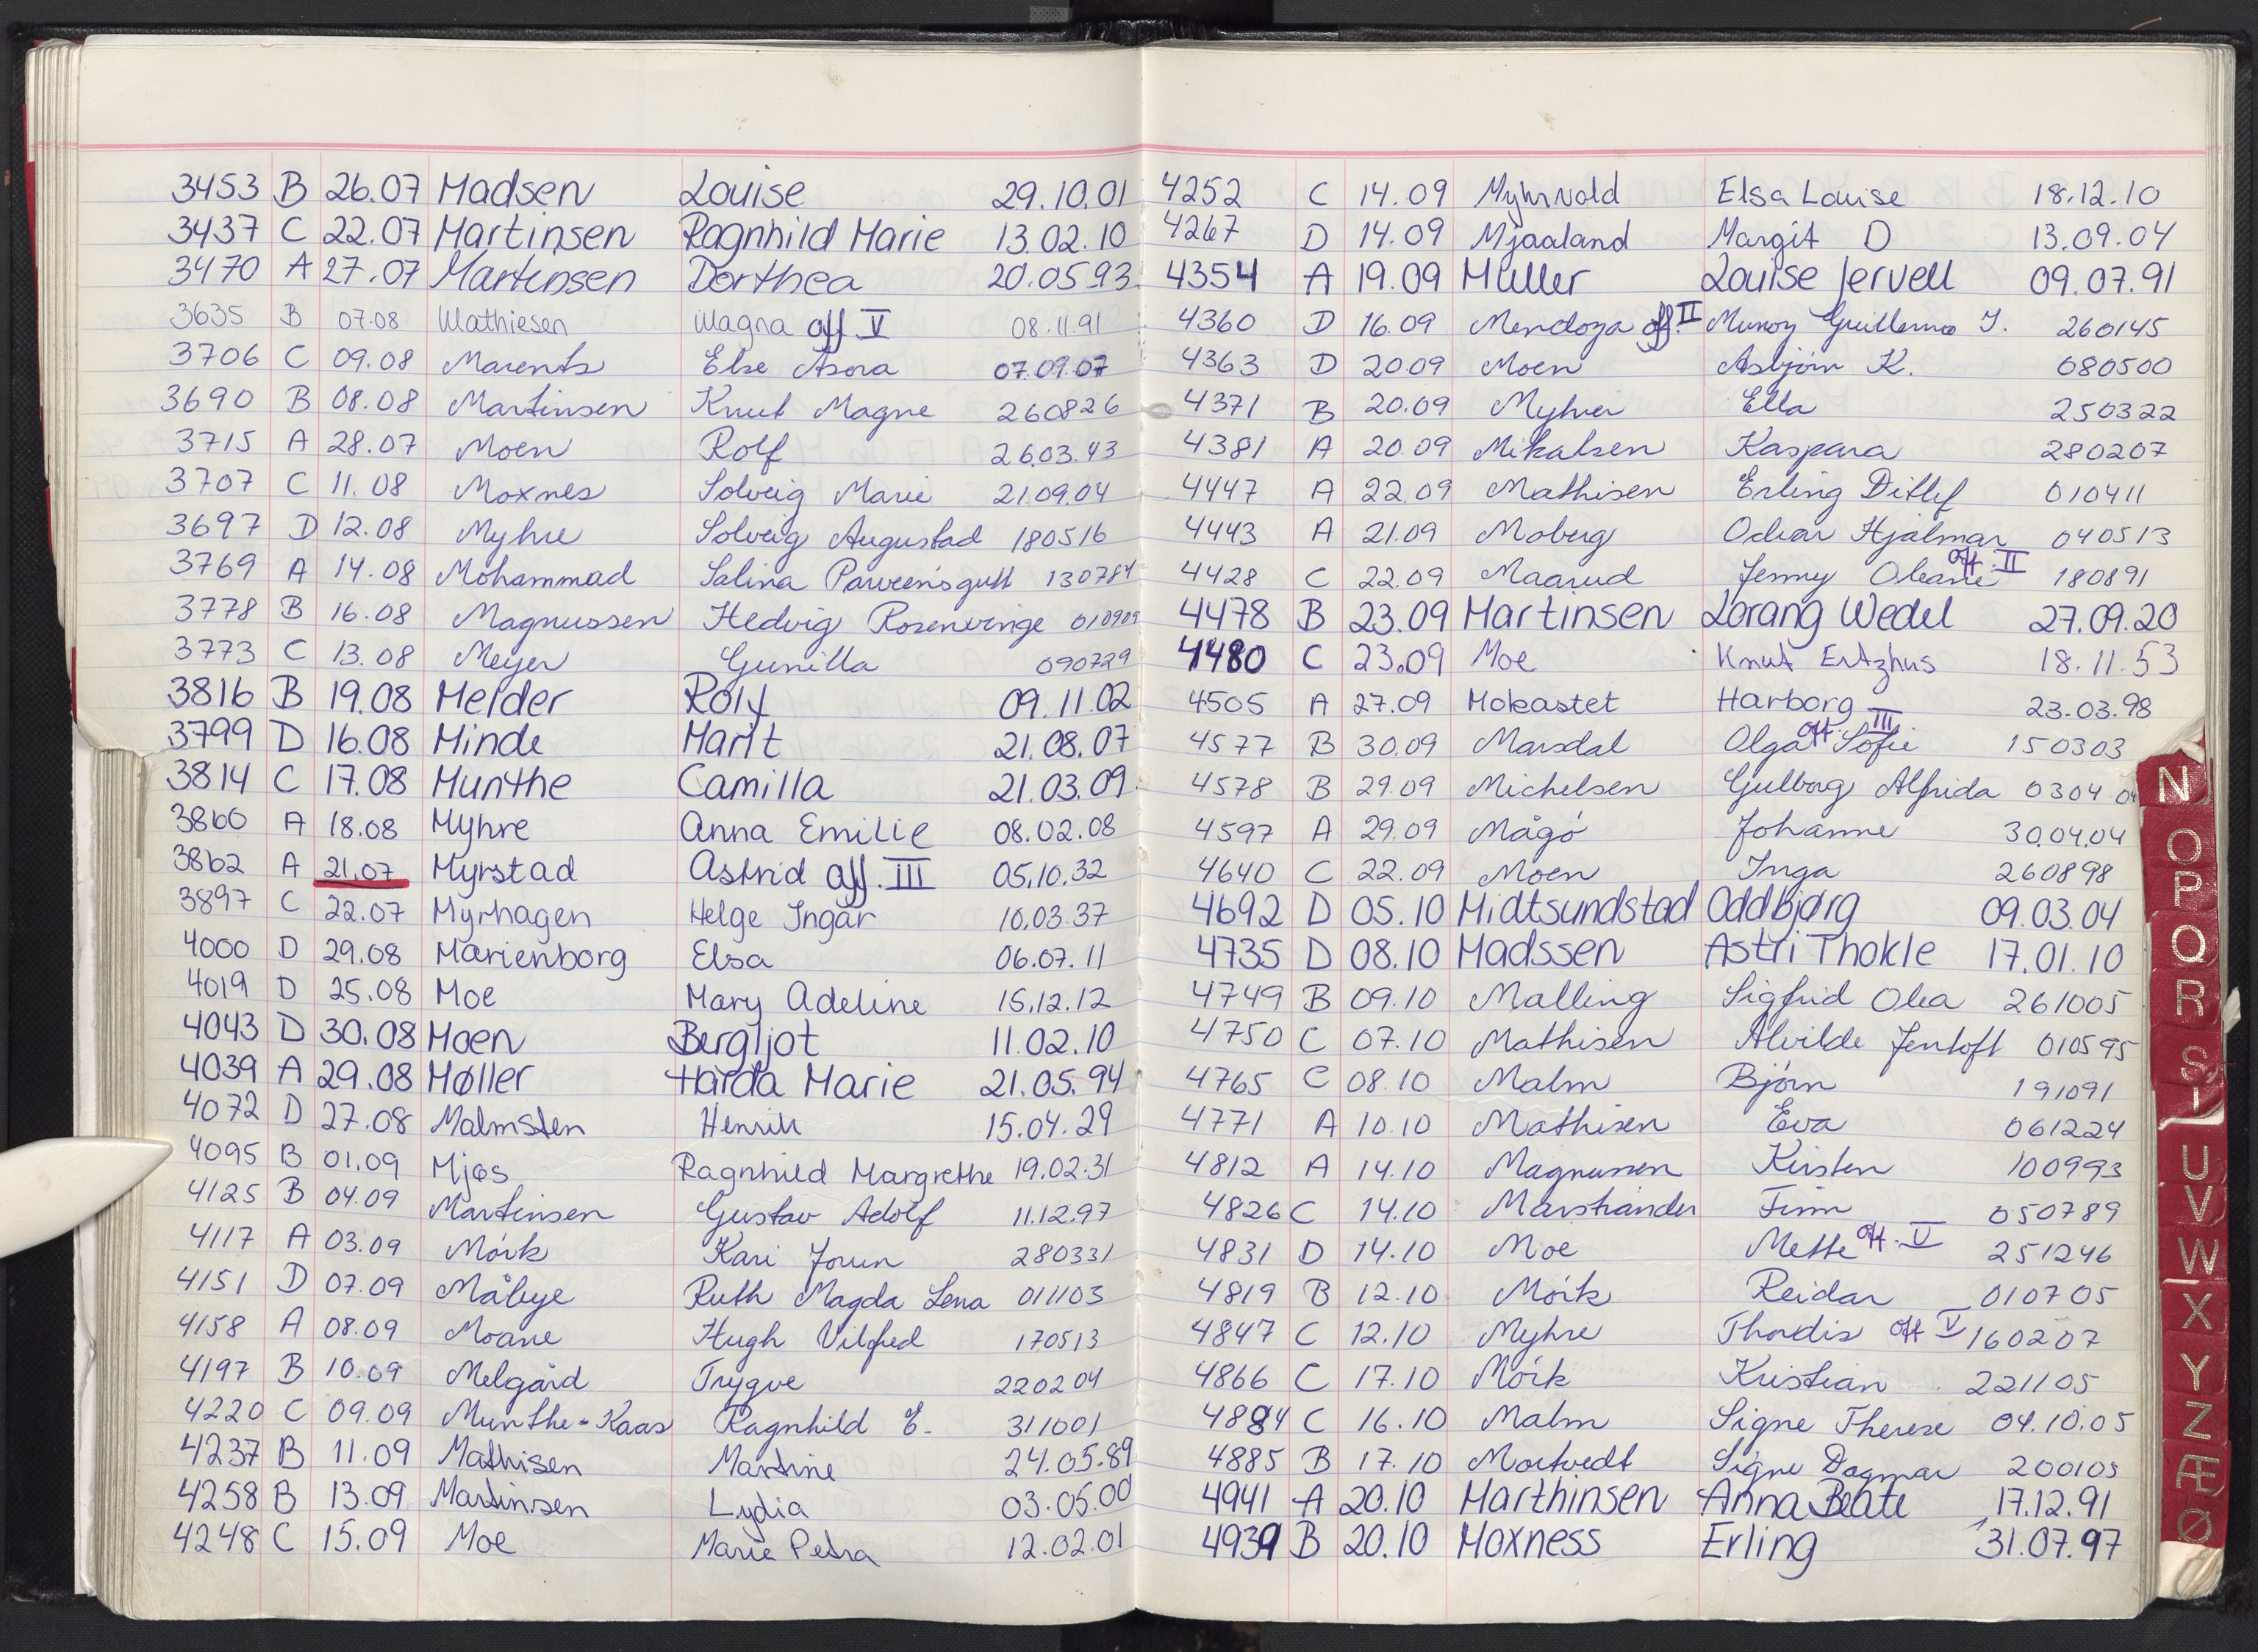 3453 B 26.07 Madsen Louise 29.10.01
3437 C 22.07 Martinsen Ragnhild Marie 13.02.10
3470 A 27.07 Martinsen Dorthea 20.05.93
3635 B 07.08 Mathiesen Magna off V 08.11.91
3706 C 09.08 Marents Else Asora 07.09.07
3690 B 08.08 Martinsen Knut Magne 260826
3715 A 28.07 Moen Rolf 26.03.43
3707 C 11.08 Moxnes Solveig Marie 21.09.04
3697 D 12.08 Myhre Solveig Augustad 180516
3769 A 14.08 Mohammad Salina Parveen's gutt 130784
3778 B 16.08 Magnussen Hedvig Rosenvinge 010909
3773 C 13.08 Meyer Gunilla 090729
3816 B 19.08 Melder Rolf 09.11.02
3799 D 16.08 Minde Marit 21.08.07
3814 C 17.08 Munthe Camilla 21.03.09
3860 A 18.08 Myhre Anna Emilie 08.02.08
3862 A 21.07 Myrstad Astrid off. III 05.10.32
3897 C 22.07 Myrhagen Helge Ingar 10.03.37
4000 D 29.08 Marienborg Elsa 06.07.11
4019 D 25.08 Moe Mary Adeline 15.12.12
4043 D 30.08 Moen Bergljot 11.02.10
4039 A 29.08 Møller Harda Marie 21.05.94
4072 D 27.08 Malmsten Henrik 15.04.29
4095 B 01.09 Mjøs Ragnhild Margrethe 19.02.31
4125 B 04.09 Martinsen Gustav Adolf 11.12.97
4117 A 03.09 Mörk Kari Jorun 280331
4151 D 07.09 Målbye Ruth Magda Lena 011103
4158 A 08.09 Moane Hugh Vilfred 170513
4197 B 10.09 Melgård Trygve 220204
4220 C 09.09 Munthe-Kaas Ragnhild E. 311001
4237 B 11.09 Mathisen Martine 24.05.89
4258 B 13.09 Martinsen Lydia 03.05.00
4248 C 15.09 Moe Marie Petra 12.02.01
4252 C 14.09 Myhrvold Elsa Louise 18.12.10
4267 D 14.09 Mjaaland Margit D 13.09.04
4354 A 19.09 Müller Louise Jervell 09.07.91
4360 D 16.09 Mendoza off. II Munoz Guillermo J. 260145
4363 D 20.09 Moen Asbjörn K. 080500
4371 B 20.09 Myhrer Ella 250322
4381 A 20.09 Mikalsen Kaspara 280207
4447 A 22.09 Mathisen Erling Ditlef 010411
4443 A 21.09 Moberg Odvar Hjalmar 040513
4428 C 22.09 Maarud Jenny Oleane off. II 180891
4478 B 23.09 Martinsen Lorang Wedel 27.09.20
4480 C 23.09 Moe Knut Ertzhus 18.11.53
4505 A 27.09 Mokastet Harborg 23.03.98
4577 B 30.09 Marsdal Olga Sofie off III 150303
4578 B 29.09 Michelsen Gulborg Alfrida 0304.04
4597 A 29.09 Mågö Johanne 30.04.04
4640 C 22.09 Moen Inga 260898
4692 D 05.10 Midtsundstad Oddbjørg 09.03.04
4735 D 08.10 Madssen Astri Thokle 17.01.10
4749 B 09.10 Malling Sigfrid Olea 261005
4750 C 07.10 Mathisen Alvilde Jentoft 010595
4765 C 08.10 Malm Björn 191091
4771 A 10.10 Mathisen Eva 061224
4812 A 14.10 Magnussen Kirsten 100993
4826 C 14.10 Marstrander Finn 050789
4831 D 14.10 Moe Mette off. V 251246
4819 B 12.10 Mörk Reidar 010705
4847 C 12.10 Myhre Thordis off V 160207
4866 C 17.10 Mörk Kristian 221105
4884 C 16.10 Malm Signe Therese 04.10.05
4885 B 17.10 Mortvedt Signe Dagmar 200105
4941 A 20.10 Marthinsen Anna Beate 17.12.91
4939 B 20.10 Moxness Erling 31.07.97
N
O
P
Q
R
S
T
U
V
W
X
Y
Z
Æ
Ø